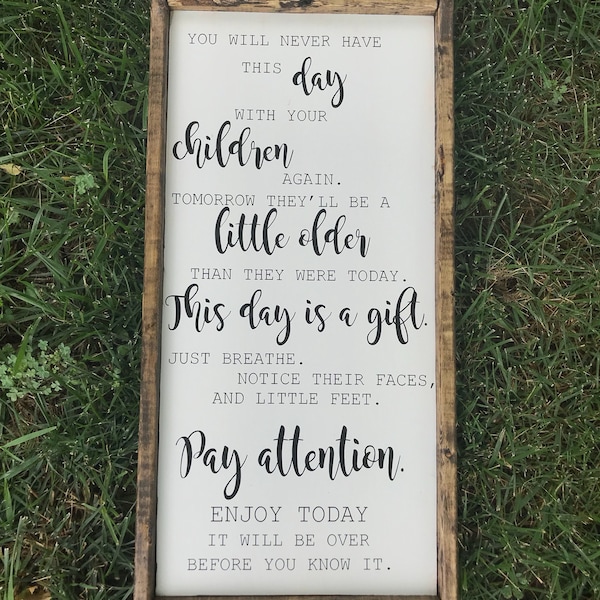 YOU WILL NEVER HAVE
THIS day
WITH YOUR
children
AGAIN.
TOMORROW THEY'LL BE A
little older
THAN THEY WERE TODAY.
This day is a gift.
JUST BREATHE.
NOTICE THEIR FACES,
AND LITTLE FEET.
Pay attention.
ENJOY TODAY
IT WILL BE OVER
BEFORE YOU KNOW IT.